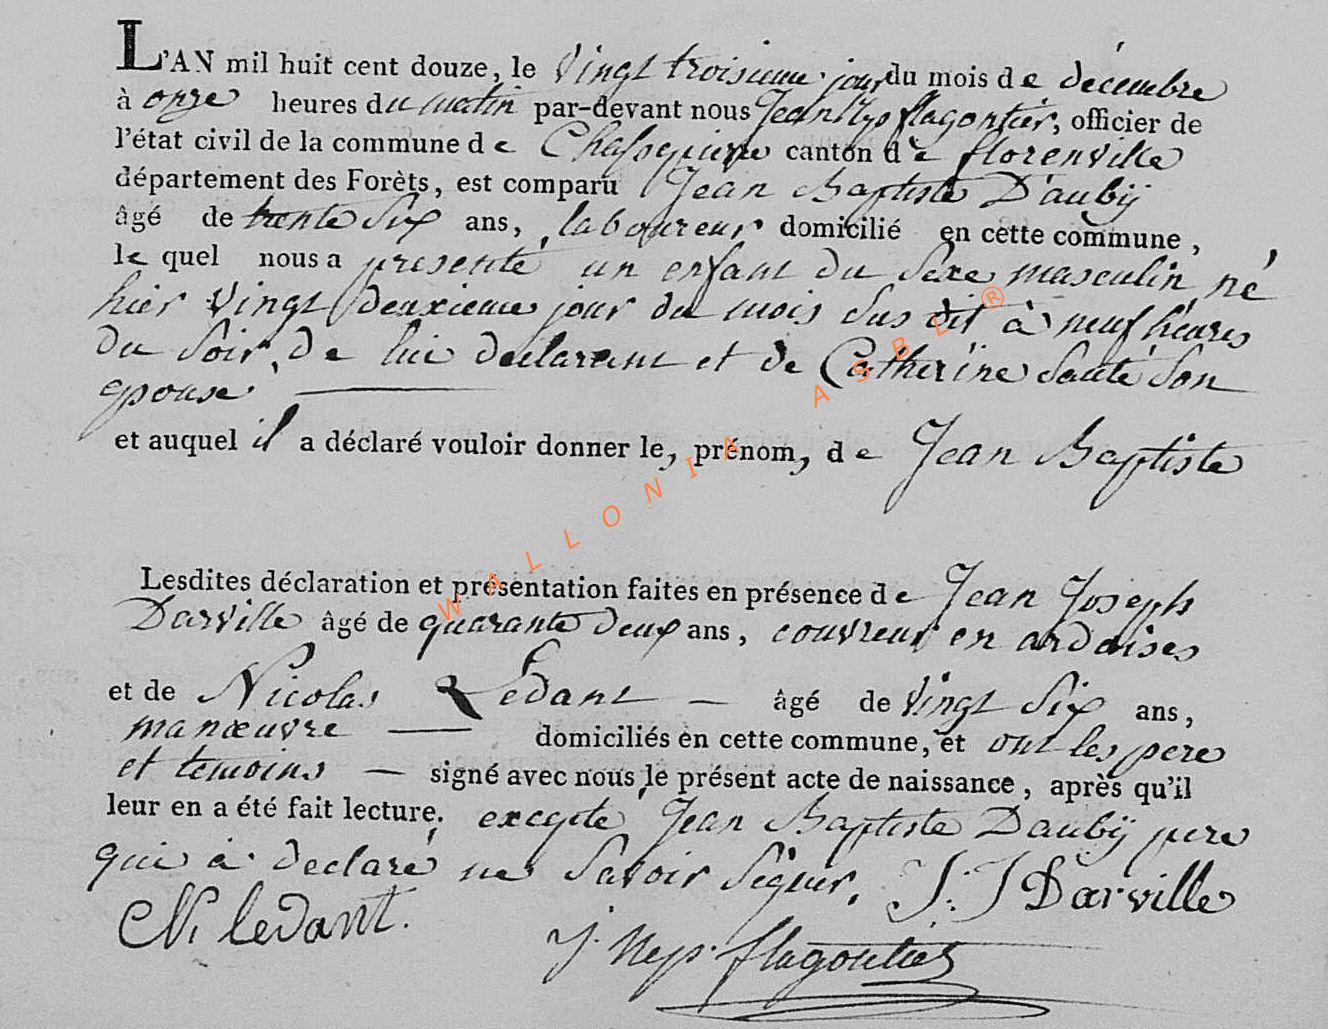 L'AN mil huit cent douze, le Vingt troisieme jour du mois de décembre
à onze heures du matin par-devant nous Jean Nep flagontier, officier de
l'état civil de la commune de Chassepierre canton de florenville
département des Forèts, est comparu Jean Baptiste Daubÿ
âgé de trente Six ans, laboureur domicilié en cette commune,
le quel nous a presenté un enfant du Sexe masculin né
hier Vingt deuxieme jour du mois Sus dit à neuf heures
du Soir, de lui declarant et de Catherine Sauté Son
epouse
et auquel il a déclaré vouloir donner le, prénom, de Jean Baptiste
Lesdites déclaration et présentation faites en présence de Jean Joseph
Darville âgé de quarante deux ans, couvreur en ardoises
et de Nicolas Ledant — âgé de Vingt Six ans,
manœuvre — domiciliés en cette commune, et ont les pere
et temoins — signé avec nous le présent acte de naissance, après qu'il
leur en a été fait lecture. excepté Jean Baptiste Daubÿ pere
qui a declaré ne Savoir Signer. J: J Darville
N. ledant.
J. Nep. flagontier
WALLONIA ASBL ®